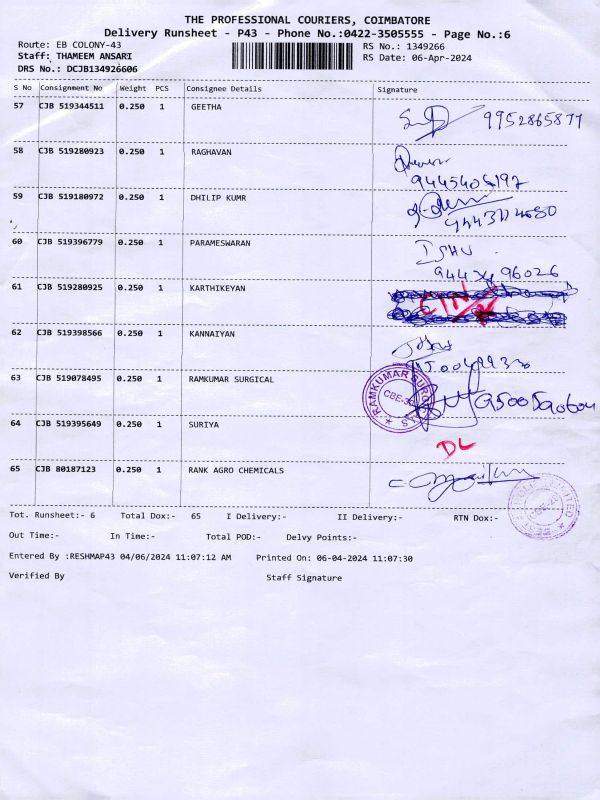 THE PROFESSIONAL COURIERS, COIMBATORE
Delivery Runsheet - P43 - Phone No.:0422-3505555 - Page No.:6
Route: EB COLONY-43 RS No.: 1349266
Staff: THAMEEM ANSARI RS Date: 06-Apr-2024
DRS No.: DCJB134926606
S No Consignment No Weight PCS Consignee Details Signature
57 CJB 519344511 0.250 1 GEETHA 9952865877
58 CJB 519280923 0.250 1 RAGHAVAN
59 CJB 519180972 0.250 1 DHILIP KUMR
60 CJB 519396779 0.250 1 PARAMESWARAN
61 CJB 519280925 0.250 1 KARTHIKEYAN
62 CJB 519398566 0.250 1 KANNAIYAN
63 CJB 519078495 0.250 1 RAMKUMAR SURGICAL RAMKUMAR SURGICALS
64 CJB 519395649 0.250 1 SURIYA DL
65 CJB 80187123 0.250 1 RANK AGRO CHEMICALS
Tot. Runsheet:- 6 Total Dox:- 65 I Delivery:- II Delivery:- RTN Dox:-
Out Time:- In Time:- Total POD:- Delvy Points:-
Entered By :RESHMAP43 04/06/2024 11:07:12 AM Printed On: 06-04-2024 11:07:30
Verified By Staff Signature